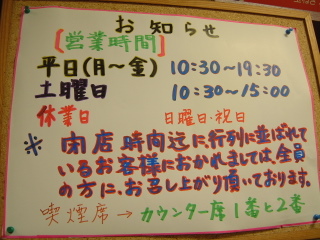 お知らせ
[営業時間]
平日(月〜金) 10:30〜19:30
土曜日 10:30〜15:00
休業日 日曜日・祝日
※閉店時間迄に、行列に並ばれて
いるお客様におかれましては、全員
の方に、お召し上がり頂いております。
喫煙席→カウンター席1番と2番